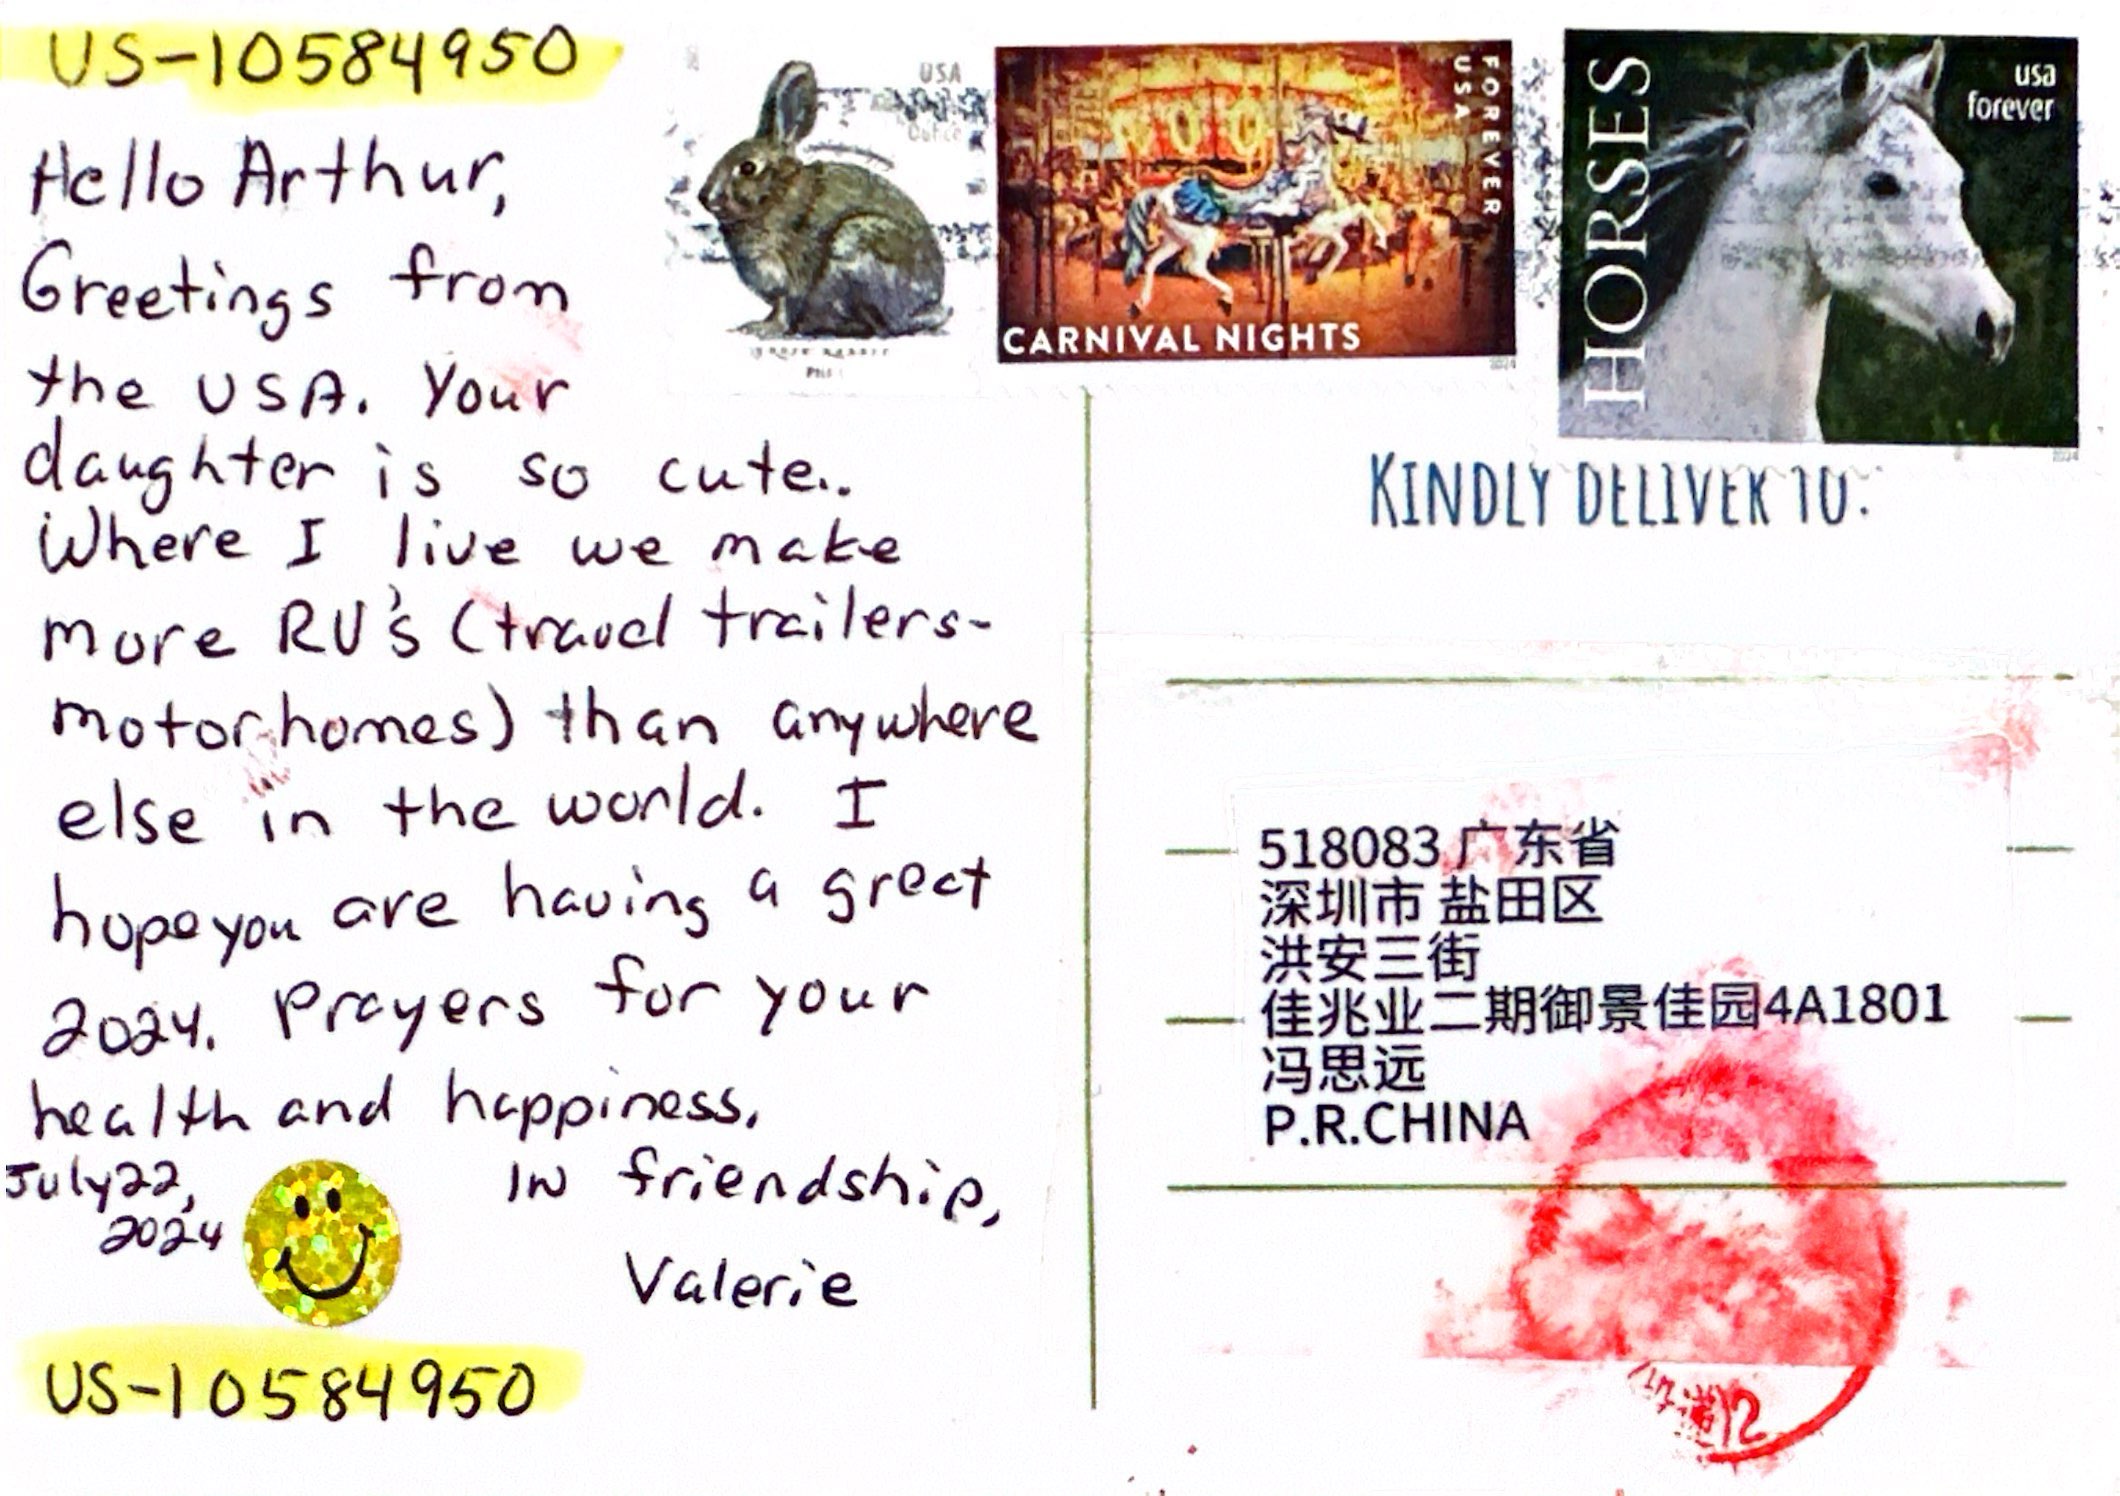 US-10584950
Hello Arthur,
Greetings from
the USA. Your
daughter is so cute..
Where I live we make
more RV's (travel trailers-
motorhomes) than anywhere
else in the world. I
hope you are having a great
2024. Prayers for your
health and happiness.
July 22,
2024
IN friendship,
Valerie
US-10584950
USA
CARNIVAL NIGHTS
FOREVER
USA
2024
HORSES
usa
forever
2024
KINDLY DELIVER TO:
518083 广东省
深圳市 盐田区
洪安三街
佳兆业二期御景佳园4A1801
冯思远
P.R.CHINA
12